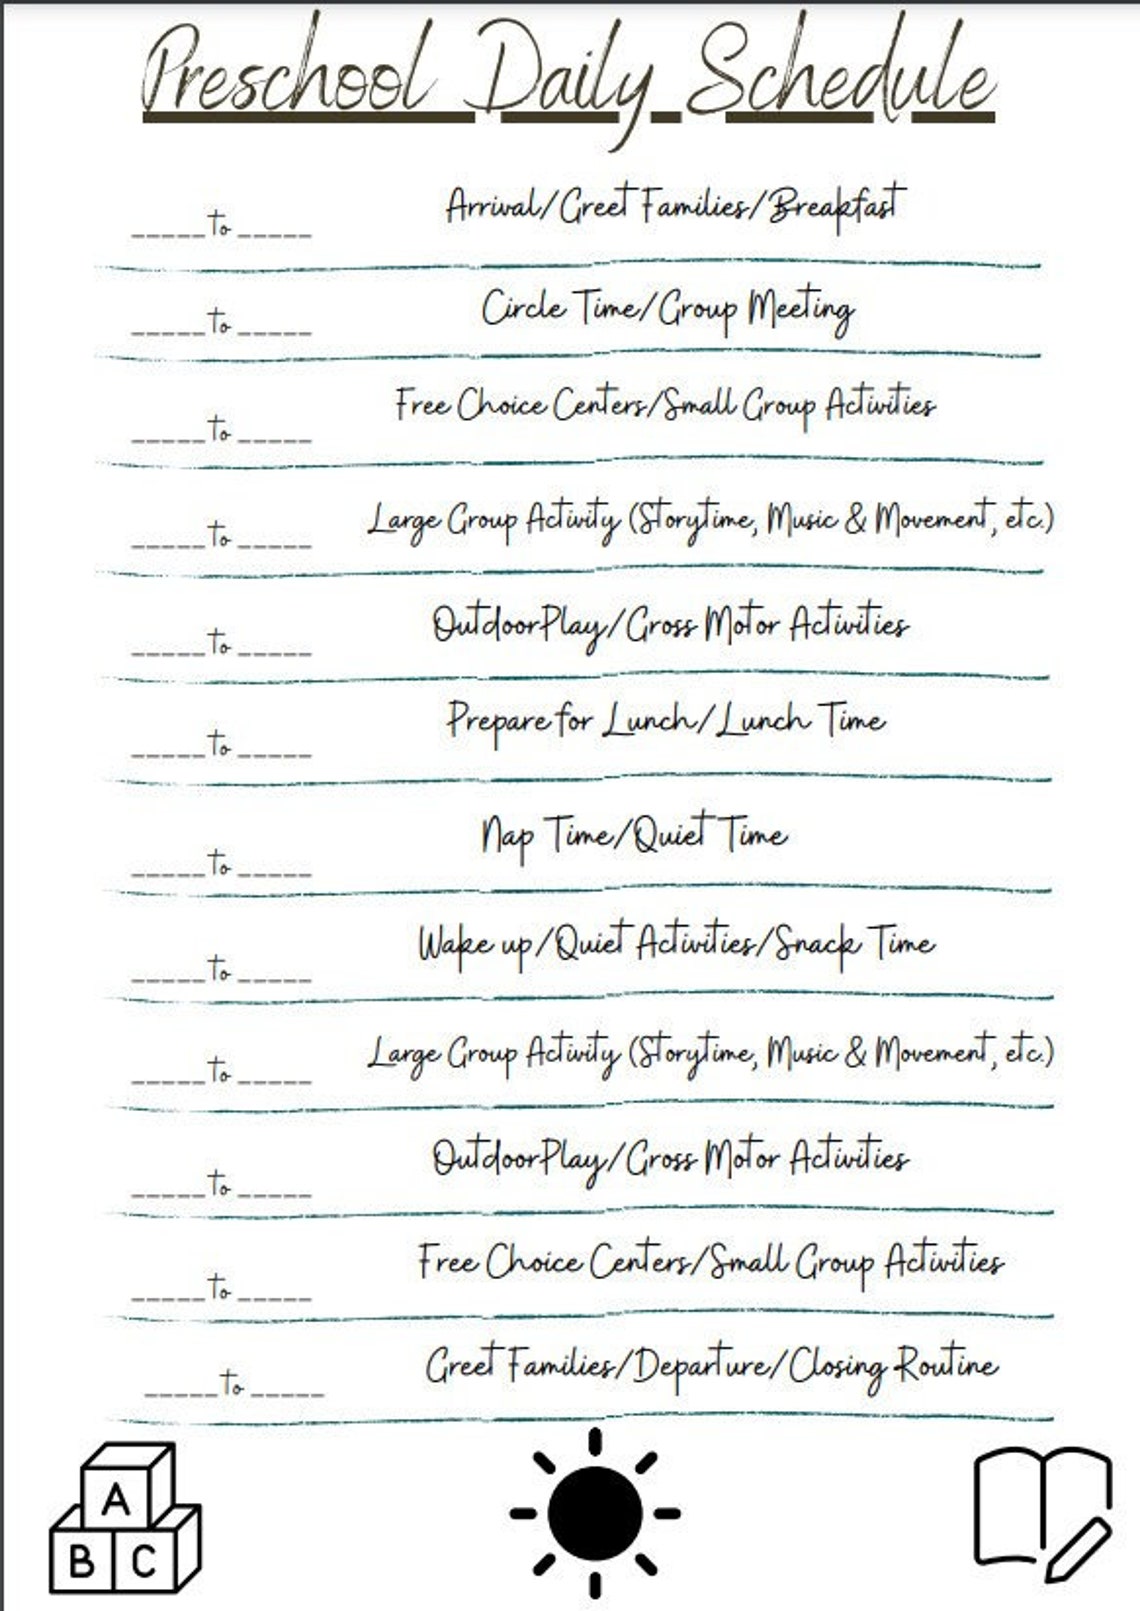 Preschool Daily Schedule
_____to_____ Arrival/Greet Families/Breakfast
_____to_____ Circle Time/Group Meeting
_____to_____ Free Choice Centers/Small Group Activities
_____to_____ Large Group Activity (Storytime, Music & Movement, etc.)
_____to_____ OutdoorPlay/Gross Motor Activities
_____to_____ Prepare for Lunch/Lunch Time
_____to_____ Nap Time/Quiet Time
_____to_____ Wake up/Quiet Activities/Snack Time
_____to_____ Large Group Activity (Storytime, Music & Movement, etc.)
_____to_____ OutdoorPlay/Gross Motor Activities
_____to_____ Free Choice Centers/Small Group Activities
_____to_____ Greet Families/Departure/Closing Routine
A
B C